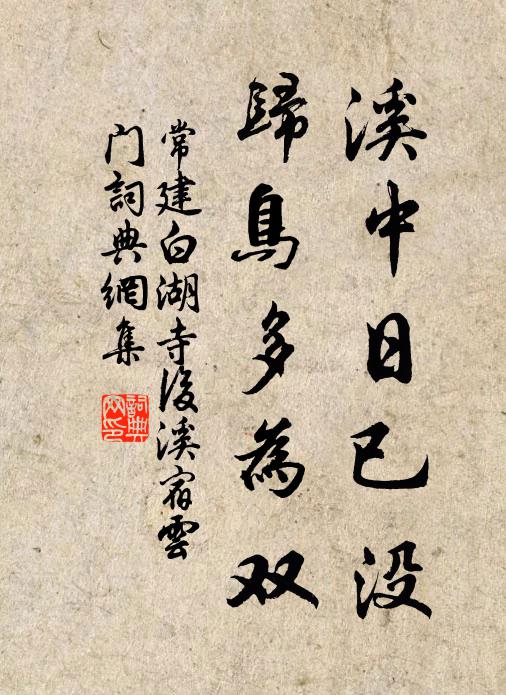 溪中日已没
歸鳥多為双
常建白湖寺後溪宿雲
门詞典網集
詞典网印